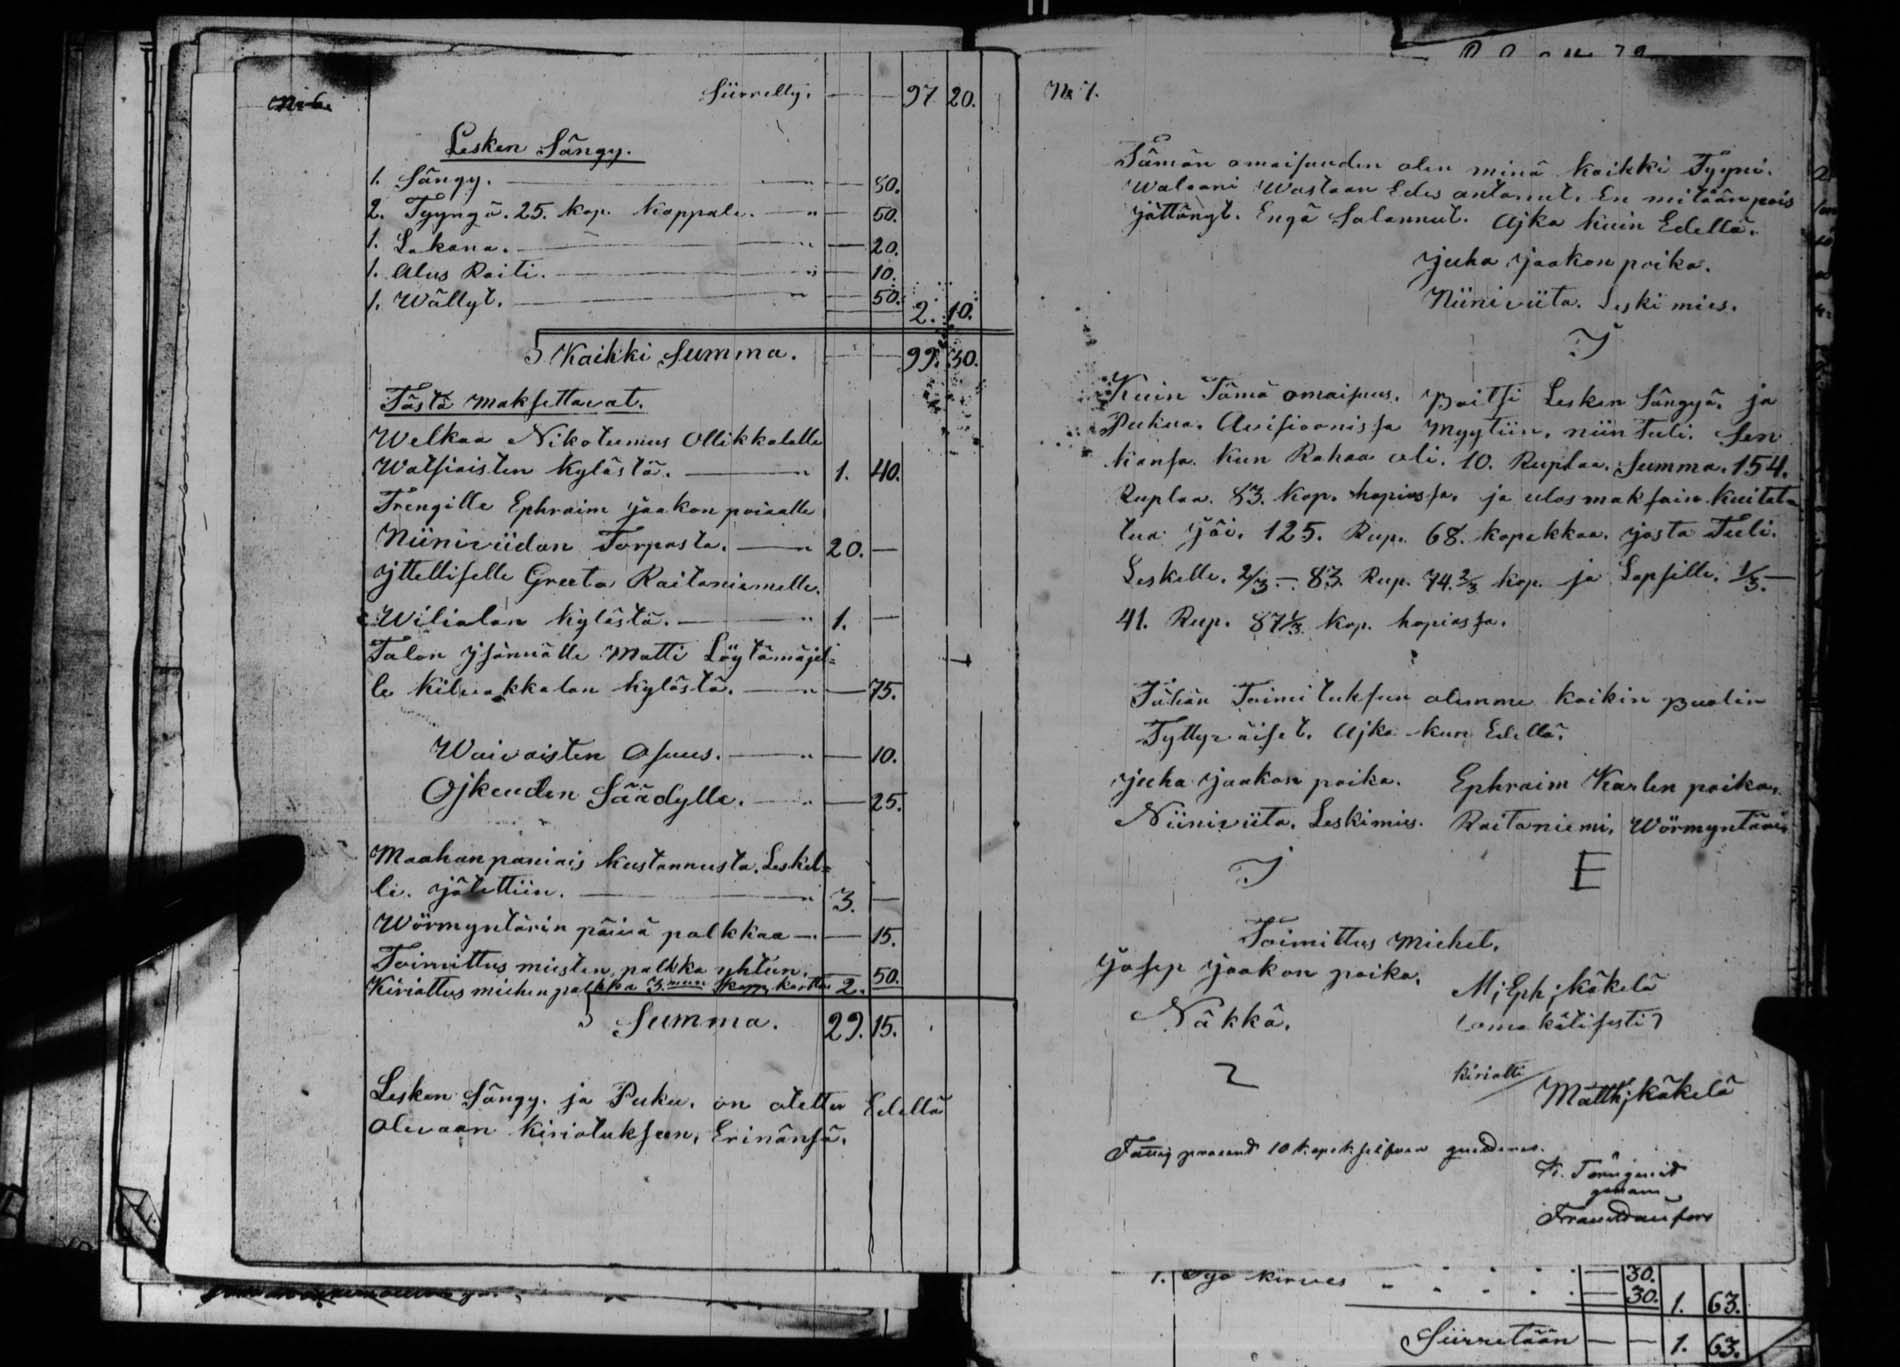 Siirretty. — — 97 20.
Lesken Sängy.
1. Sängy. — " — 80.
2. Tyyngä. 25. kop. kappale. — " — 50.
1. Lakana. — " — 20.
1. Alus Raiti. — " — 10.
1. Wällyt. — " — 50. 2. 10.
Kaikki Summa. — — 99. 30.
Tästä maksettavat.
Welkaa Nikotemus Ollikkalalle
Watsiaisten kylästä. — " 1. 40.
Trengille Ephraim Jaakon poiaalle
Niiniviidan Torpasta. — " 20. —
Yttelliselle Greeta Raitaniemelle.
Wilialan kylästä. — " 1. —
Talon Ysännälle Matti Löytämäjel=
le Kilwakkalan kylästä. — " — 75.
Waivaisten Osuus. — " — 10.
Ojkeuden Säädylle. — " — 25.
Maahan paniais kustannusta. Leskel=
le. jätettiin. — " 3. —
Wörmyntärin päivä palkkaa — " — 15.
Toimittus miesten palkka yhteen. — 50.
Kiriottus miehen palkka 2.
Summa. 29. 15.
Lesken Sängy. ja Puku. on otettu Edellä
olevaan kiriotukseen, Erinänsä.
No 7.
Tämän omaisuuden olen minä kaikki Tyyni.
Walaani Wastaan Edes antanut. En mitään pois
jättänyt. Engä Salannut. Ajka kuin Edellä.
Juha Jaakon poika.
Niiniviita. Leski mies.
J
Kuin Tämä omaisuus. paitsi Lesken Sängyä, ja
Pukua. Auisioonissa myytiin, niin Tuli. Sen
kansa. kun Rahaa oli. 10. Ruplaa. Summa. 154.
Ruplaa. 83. kop. hopiassa. ja ulos maksain kuitata
tua jäi. 125. Rup. 68. kopekkaa. josta Tuli.
Leskelle. 2/3 — 83. Rup. 74. 2/3 kop. ja Lapsille. 1/3 —
41. Rup. 87 1/3 kop. hopiassa.
Tähän Toimitukseen olemme kaikin puolin
Tyttyväiset. Ajka kun Edellä.
Juha Jaakon poika. Ephraim Karlen poika.
Niiniviita. Leskimies. Raitaniemi, Wörmyntäri.
J E
Toimittus Miehet.
Josep Jaakon poika. M; Eph; käkelä
Näkkä. oma kätisesti
2
kiriotti
Matth; käkelä
10 kopek
1. kirves — 30.
— 30. 1. 63.
Siirretään — — 1. 63.